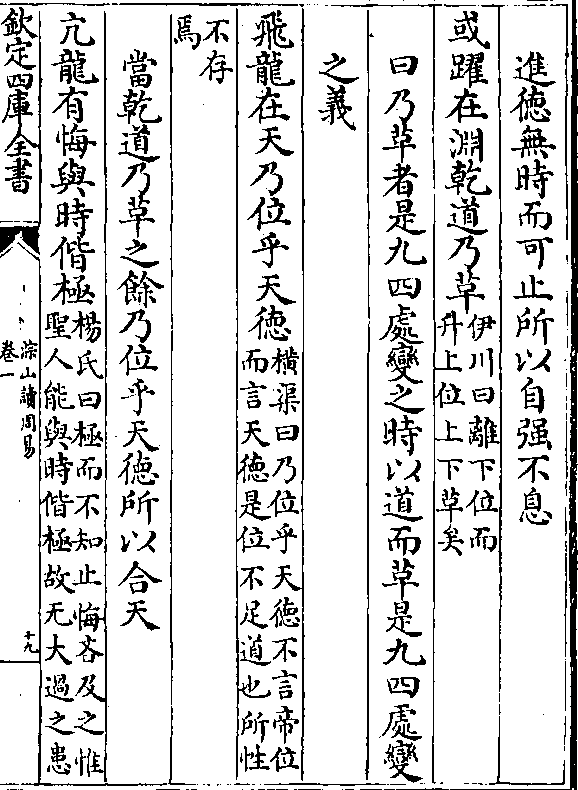 進徳無時而可止所以自强不息
或躍在淵乾道乃革
伊川曰離下位而
升上位上下革矣
曰乃革者是九四處變之時以道而革是九四處變
之義
飛龍在天乃位乎天徳
橫渠曰乃位乎天徳不言帝位
而言天徳是位不足道也所性
不存
焉
當乾道乃革之餘乃位乎天徳所以合天
亢龍有悔與時偕極
楊氏曰極而不知止悔吝及之惟
聖人能與時偕極故无大過之患
欽定四庫全書
淙山讀周易
卷一
十九